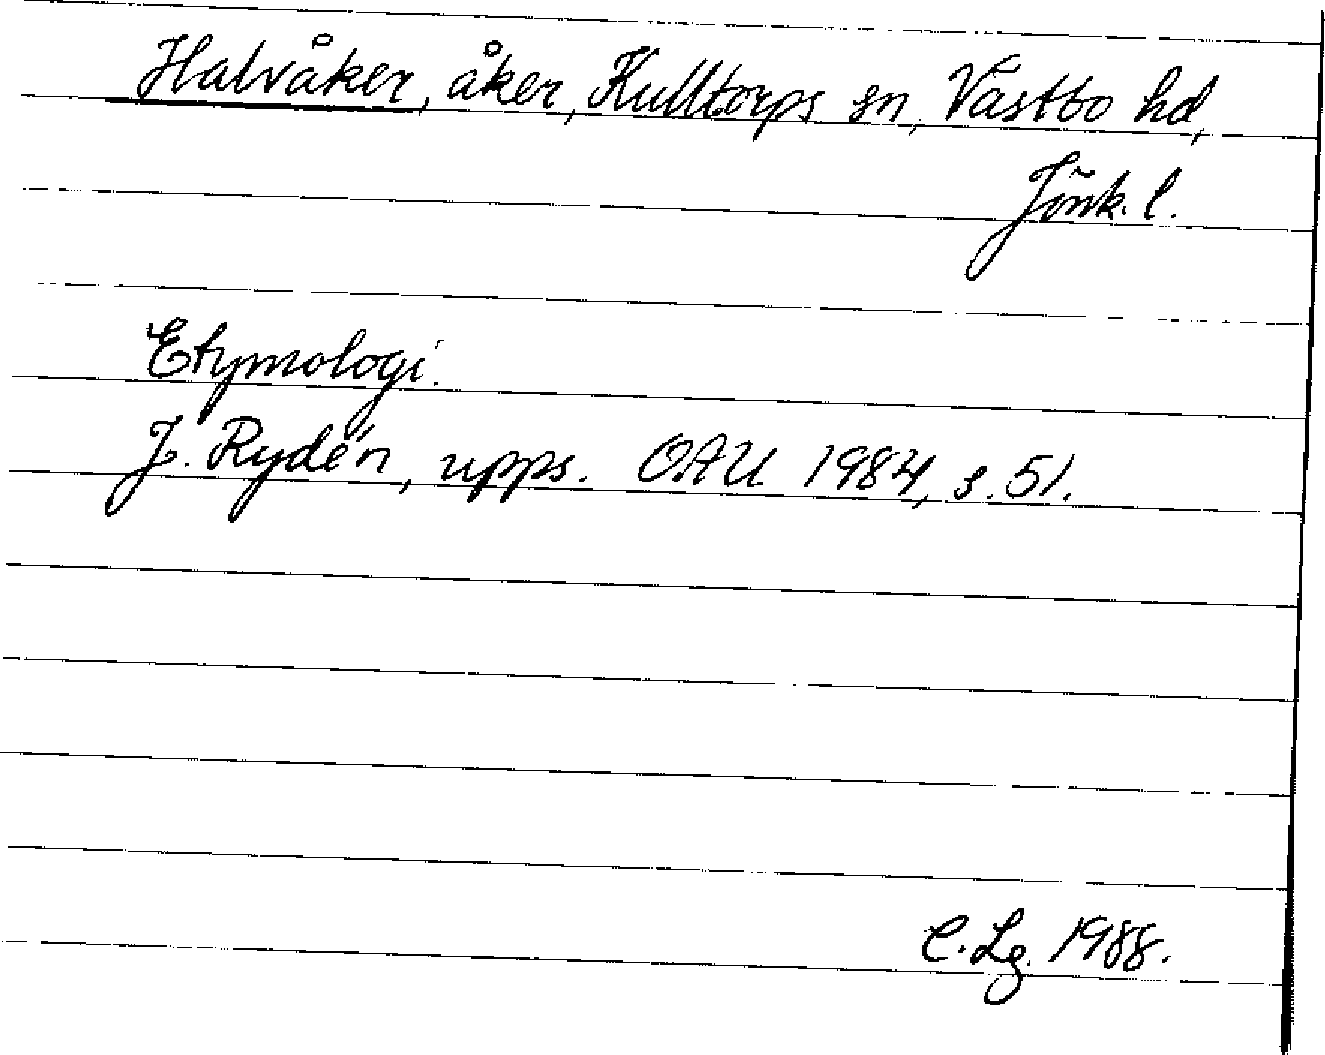 Halvåker, åker, Kulltorps sn, Västbo hd,
Jönk. l.
Etymologi.
J. Rydén, upps. OAU 1984, s. 51.
C. Lg. 1988.